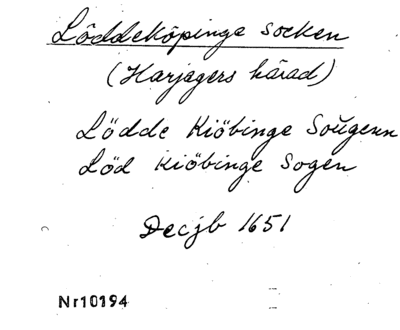 Löddeköpinge socken
(Harjagers härad)
Lödde Kiöbinge Soŭgenn
Löd Kiöbinge Sogen
Decjb 1651
Nr10194